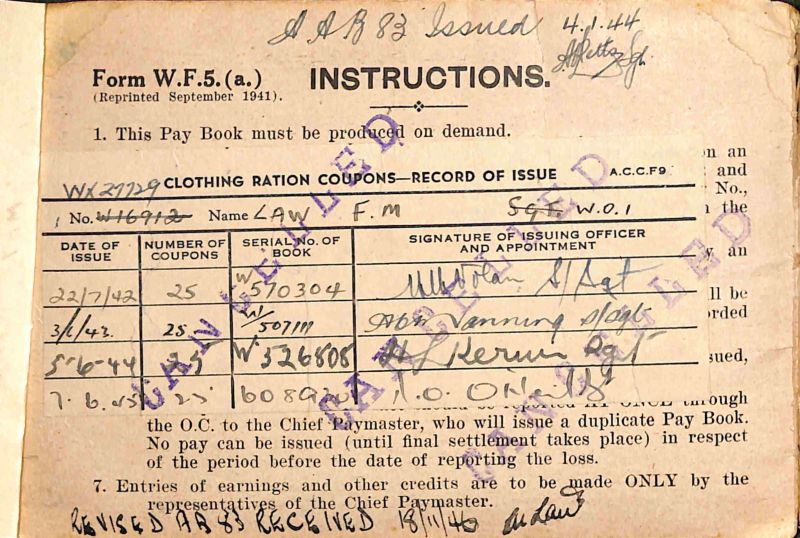 AAB 83 Issued 4.1.44
Form W.F.5.(a.)
INSTRUCTIONS.
(Reprinted September 1941).
1. This Pay Book must be produced on demand.
n an
and
No.,
the
y an
ll be
rded
sued,
WX27729 CLOTHING RATION COUPONS—RECORD OF ISSUE A.C.C.F9
No. W16912 Name LAW F. M Sgt. W.O.1
DATE OF ISSUE NUMBER OF COUPONS SERIAL No. OF BOOK SIGNATURE OF ISSUING OFFICER AND APPOINTMENT
22/7/42 25 W 570304 Nolan S/Sgt
3/6/43. 25 W/ S/Sgt
5-6-44 25 W 526808 Sgt
7.6.45 25
AT ONCE through
the O.C. to the Chief Paymaster, who will issue a duplicate Pay Book.
No pay can be issued (until final settlement takes place) in respect
of the period before the date of reporting the loss.
7. Entries of earnings and other credits are to be made ONLY by the
representatives of the Chief Paymaster.
REVISED AB 83 RECEIVED 18/11/46
CANCELLED
CANCELLED
CANCELLED